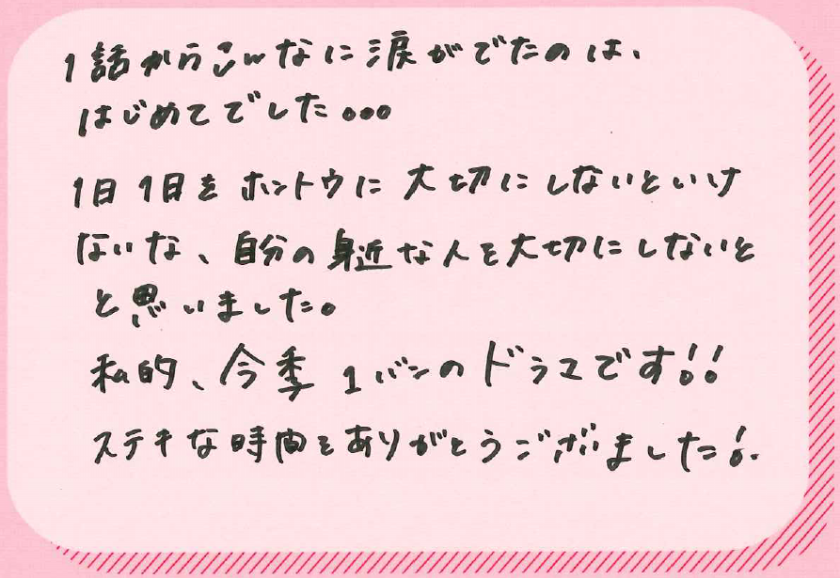 1話からこんなに涙がでたのは、
はじめてでした...
1日1日をホントウに大切にしないといけ
ないな、自分の身近な人を大切にしないと
と思いました。
私的、今季1バンのドラマです!!
ステキな時間をありがとうございました!.